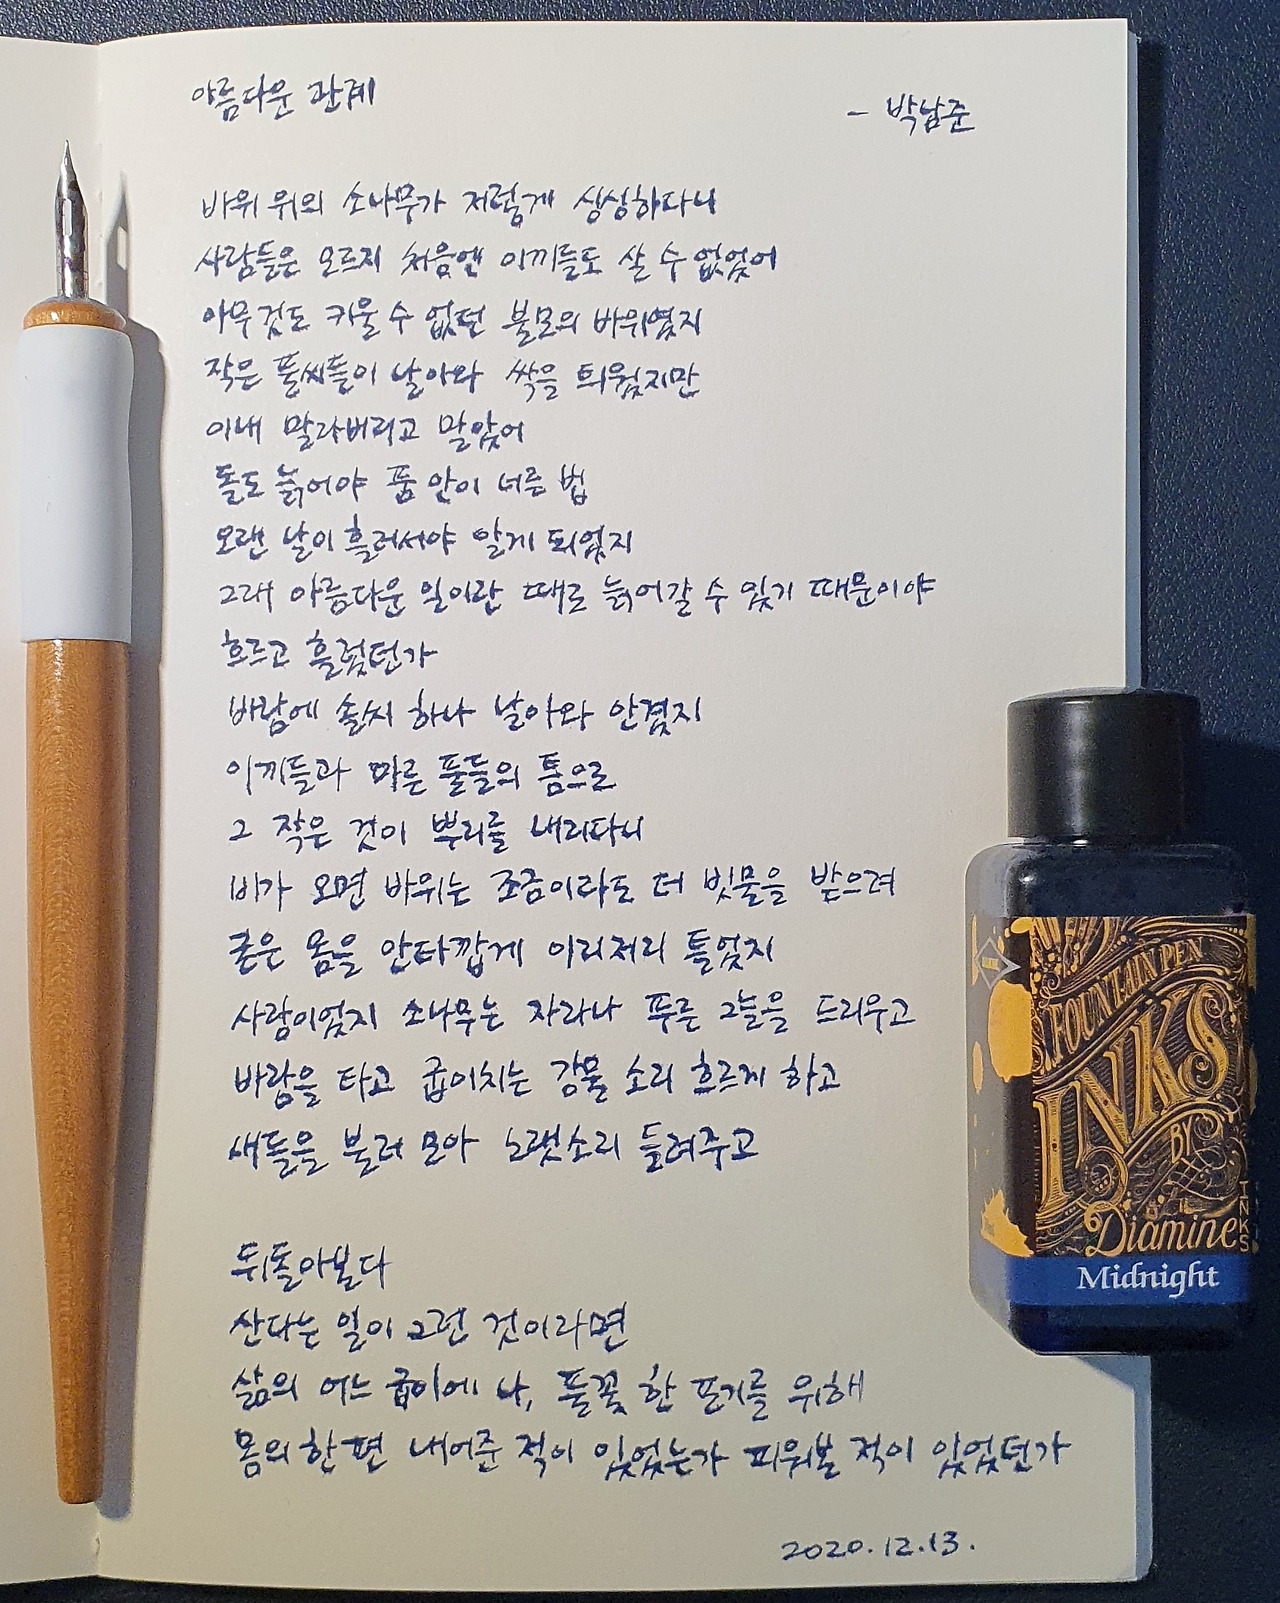 아름다운 관계
- 박남준
바위 위의 소나무가 저렇게 싱싱하다니
사람들은 모르지 처음엔 이끼들도 살 수 없었어
아무것도 키울 수 없던 불모의 바위였지
작은 풀씨들이 날아와 싹을 틔웠지만
이내 말라버리고 말았어
돌도 늙어야 품 안이 너른 법
오랜 날이 흘러서야 알게 되었지
그래 아름다운 일이란 때로 늙어갈 수 있기 때문이야
흐르고 흘렀던가
바람에 솔씨 하나 날아와 안겼지
이끼들과 마른 풀들의 틈으로
그 작은 것이 뿌리를 내리다니
비가 오면 바위는 조금이라도 더 빗물을 받으려
굳은 몸을 안타깝게 이리저리 틀었지
사랑이었지 소나무는 자라나 푸른 그늘을 드리우고
바람을 타고 굽이치는 강물 소리 흐르게 하고
새들을 불러 모아 노랫소리 들려주고
뒤돌아본다
산다는 일이 그런 것이라면
삶의 어느 굽이에 나, 풀꽃 한 포기를 위해
몸의 한편 내어준 적이 있었는가 피워본 적이 있었던가
2020.12.13.
FOUNTAIN PEN
INKS
BY
Diamine
INKS
Midnight